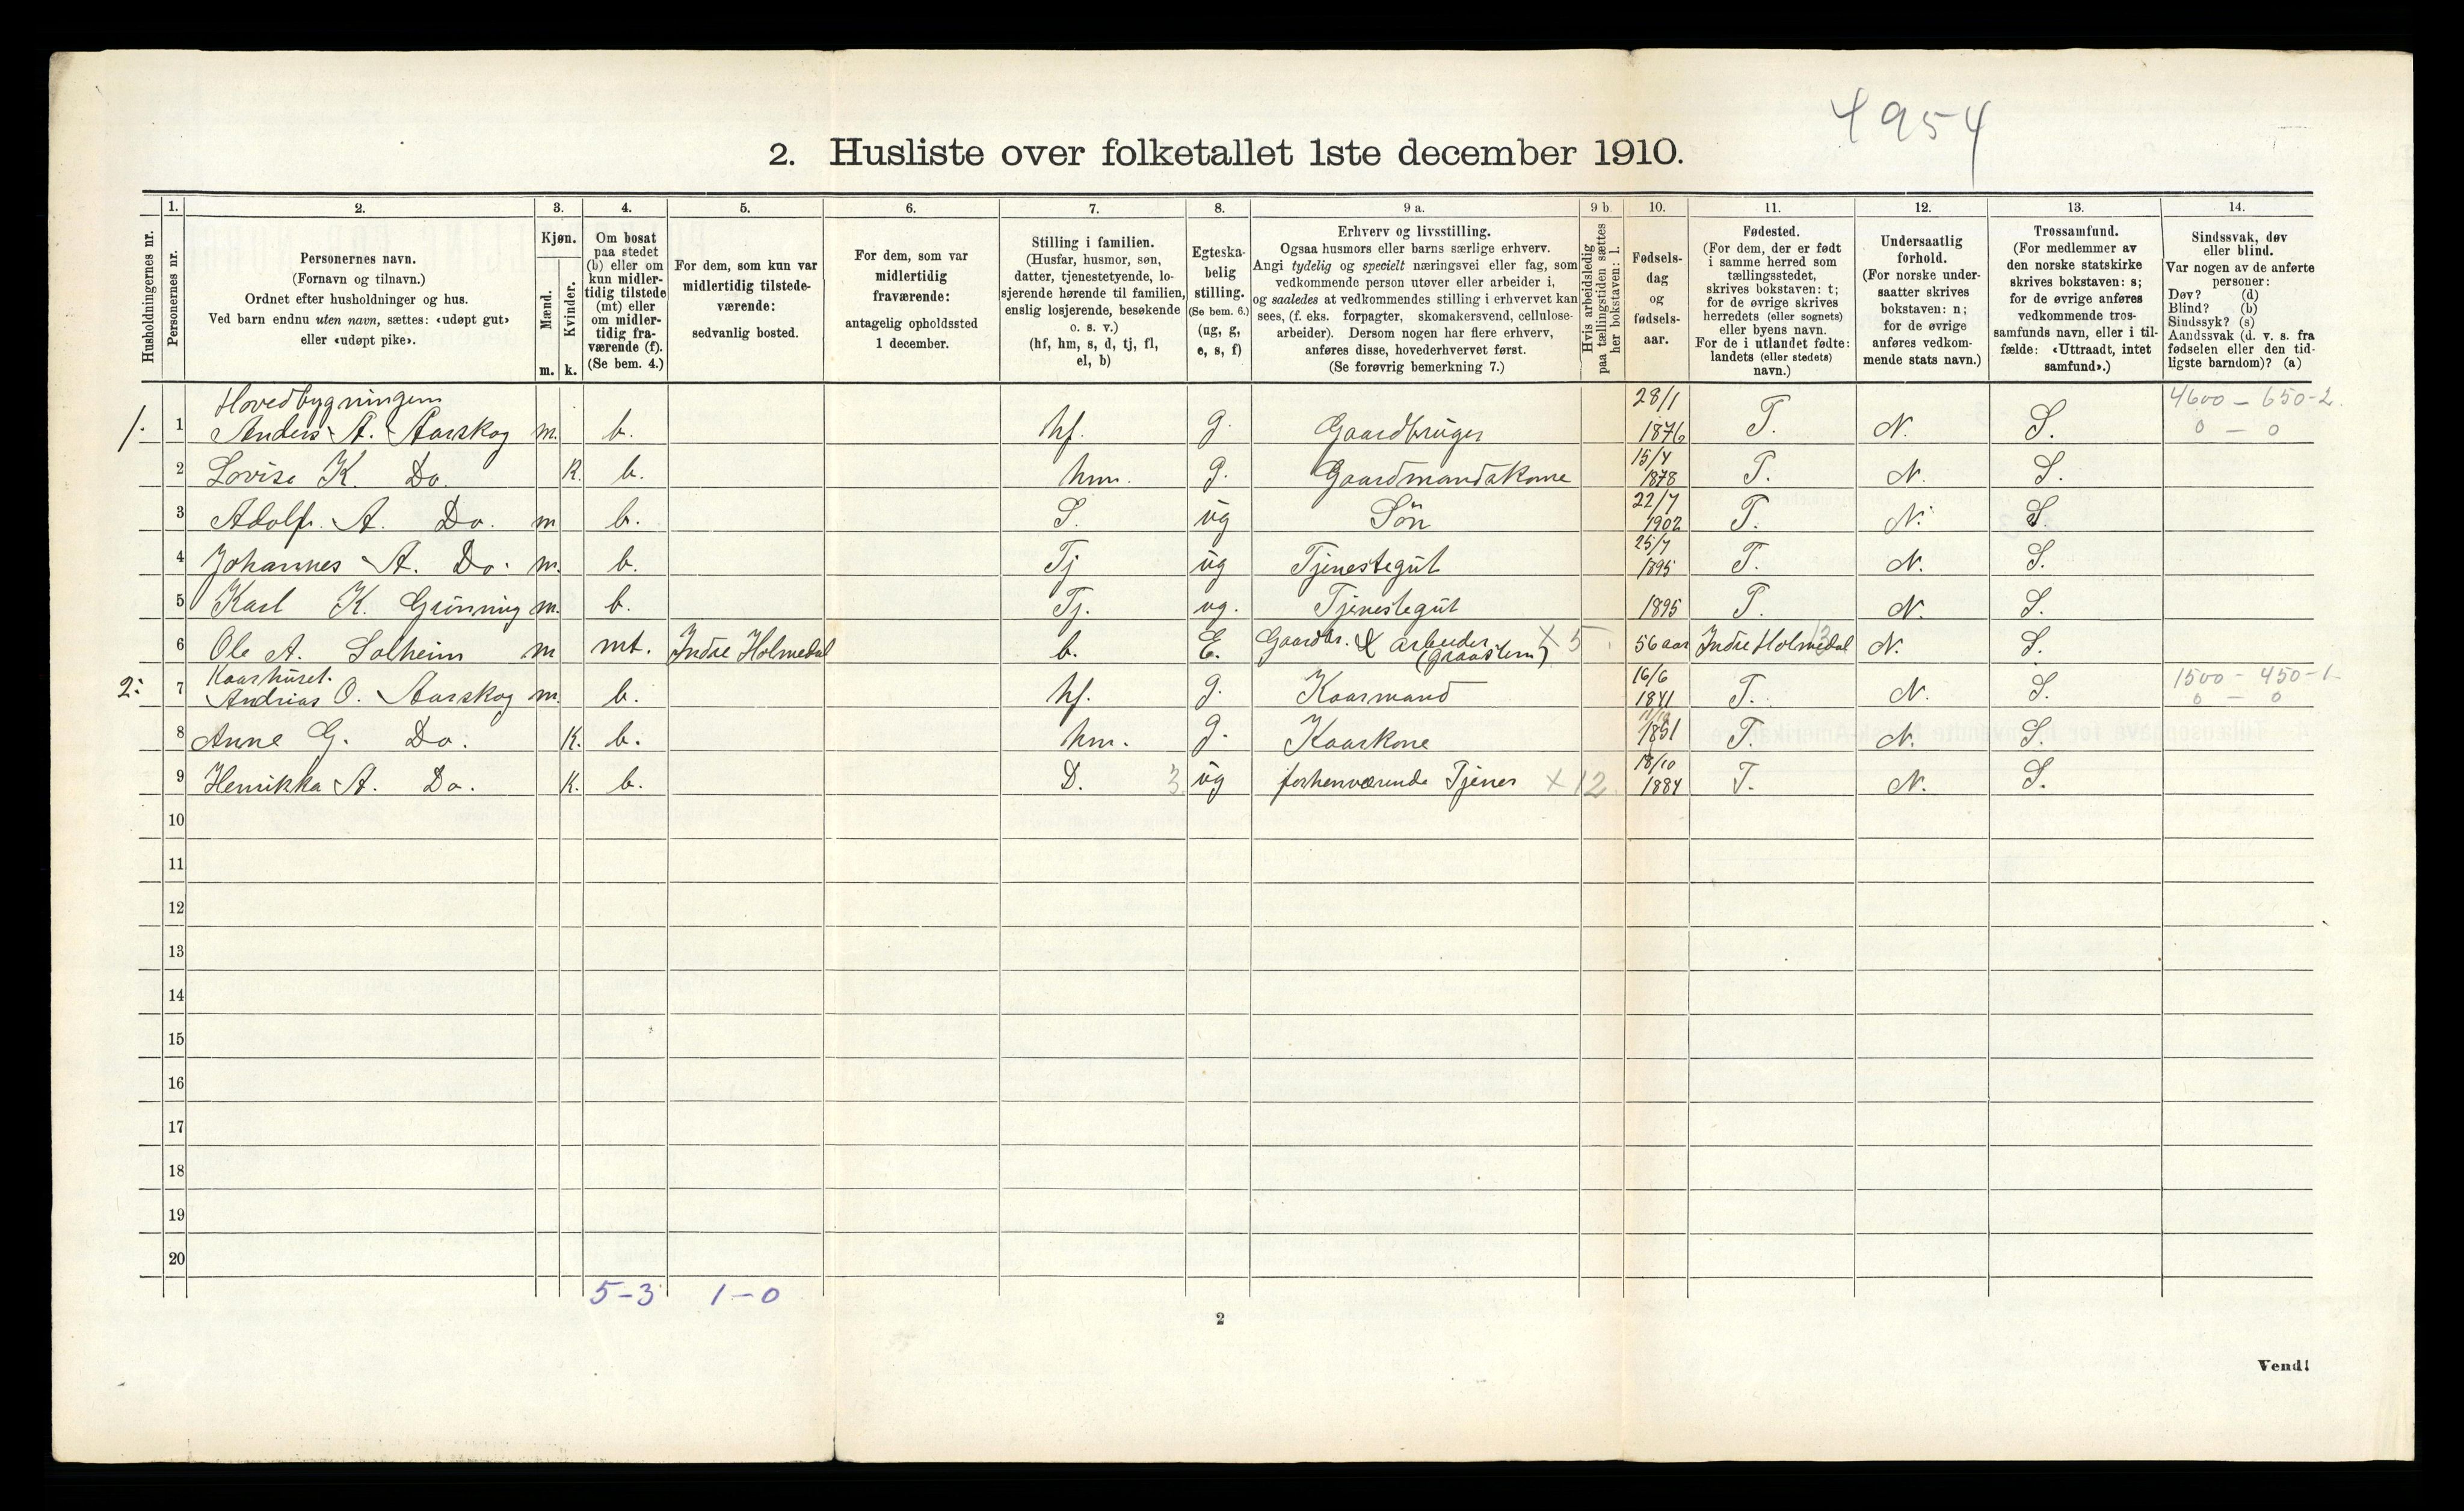 4954
2. Husliste over folketallet 1ste december 1910.
Husholdningernes nr.
1.
Personernes nr.
2.
Personernes navn.
(Fornavn og tilnavn.)
Ordnet efter husholdninger og hus.
Ved barn endnu uten navn, sættes: «udøpt gut»
eller «udøpt pike».
3.
Kjøn.
Mænd.
Kvinder.
m. k.
4.
Om bosat
paa stedet
(b) eller om
kun midler-
tidig tilstede
(mt) eller
om midler-
tidig fra-
værende (f).
(Se bem. 4.)
5.
For dem, som kun var
midlertidig tilstede-
værende:
sedvanlig bosted.
6.
For dem, som var
midlertidig
fraværende:
antagelig opholdssted
1 december.
7.
Stilling i familien.
(Husfar, husmor, søn,
datter, tjenestetyende, lo-
sjerende hørende til familien,
enslig losjerende, besøkende
o. s. v.)
(hf, hm, s, d, tj, fl,
el, b)
8.
Egteska-
belig
stilling.
(Se bem. 6.)
(ug, g,
e, s, f)
9 a.
Erhverv og livsstilling.
Ogsaa husmors eller barns særlige erhverv.
Angi tydelig og specielt næringsvei eller fag, som
vedkommende person utøver eller arbeider i,
og saaledes at vedkommendes stilling i erhvervet kan
sees, (f. eks. forpagter, skomakersvend, cellulose-
arbeider). Dersom nogen har flere erhverv,
anføres disse, hovederhvervet først.
(Se forøvrig bemerkning 7.)
9 b.
Hvis arbeidsledig
paa tællingstiden sættes
her bokstaven: l.
10.
Fødsels-
dag
og
fødsels-
aar.
11.
Fødested.
(For dem, der er født
i samme herred som
tællingsstedet,
skrives bokstaven: t;
for de øvrige skrives
herredets (eller sognets)
eller byens navn.
For de i utlandet fødte:
landets (eller stedets)
navn.)
12.
Undersaatlig
forhold.
(For norske under-
saatter skrives
bokstaven: n;
for de øvrige
anføres vedkom-
mende stats navn.)
13.
Trossamfund.
(For medlemmer av
den norske statskirke
skrives bokstaven: s;
for de øvrige anføres
vedkommende tros-
samfunds navn, eller i til-
fælde: «Uttraadt, intet
samfund».)
14.
Sindssvak, døv
eller blind.
Var nogen av de anførte
personer:
Døv? (d)
Blind? (b)
Sindssyk? (s)
Aandssvak (d. v. s. fra
fødselen eller den tid-
ligste barndom)? (a)
Hovedbygningen 28/1 4600 – 650-2.
1. 1 Anders A. Aarskog m. b. hf. g. Gaardbruger 1876 T. N. S. 0 – 0
15/4
2 Lovise K. Do. K. b. hm. g. Gaardmandskone 1878 T. N. S.
22/7
3 Adolf. A. Do. m b. S. ug Søn 1902 T. N. S.
25/7
4 Johannes A. Do. m. b. Tj ug Tjenestegut 1895 T. N. S.
5 Karl K. Grünning m. b. Tj. ug. Tjenestegut 1895 T. N. S.
6 Ole A. Solheim m mt. Indre Holmedal b. E. Gaardbr. & arbeider X 5 56 aar Indre Holmedal 13 N. S.
Kaarhuset. 16/6 1500 – 450-1
2: 7 Andrias O. Aarskog m. b. hf. g. Kaarmand 1841 T. N. S. 0 – 0
8 Anne G. Do. K. b. hm. g. Kaarkone 1851 T. N. S.
18/10
9 Henrikka A. Do. K. b. D. 3 ug forhenværende Tjener X 12 1884 T. N. S.
10
11
12
13
14
15
16
17
18
19
20
5–3 1–0
2
Vend!